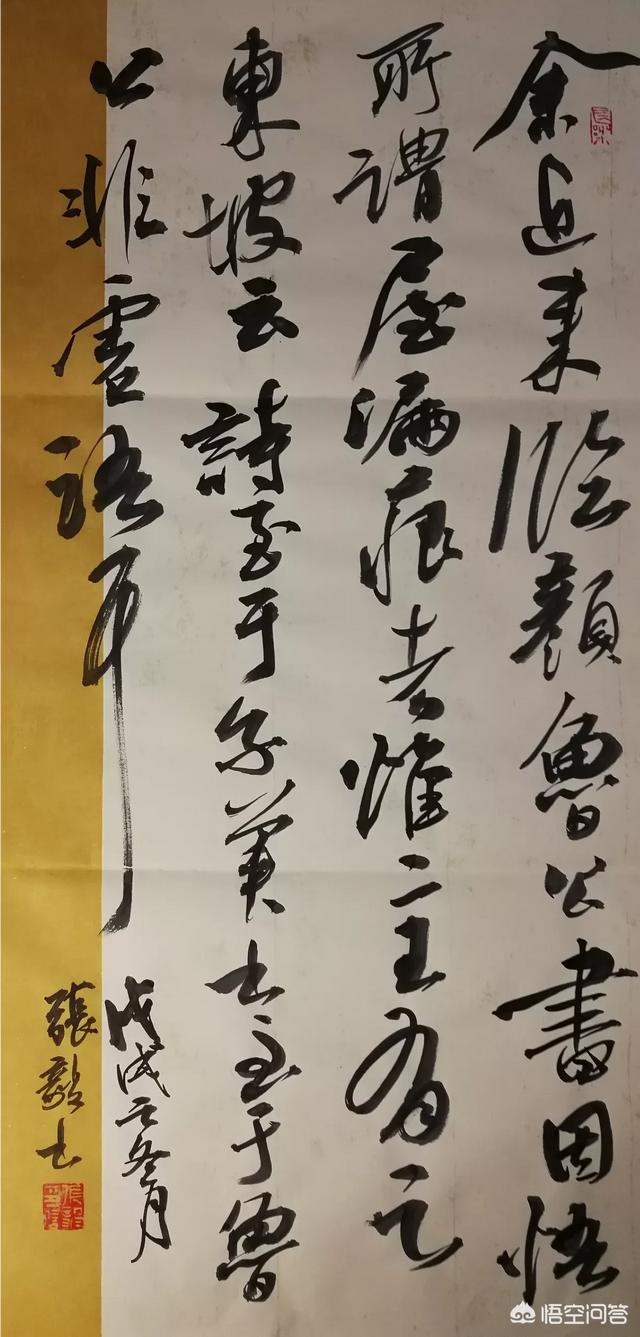 余近来临颜鲁公書因悟
所谓屋漏痕者惟二王有之
東坡云詩至于子美书至于魯
公非虚语耳
戊戌之冬月
張毅书
悟空问答